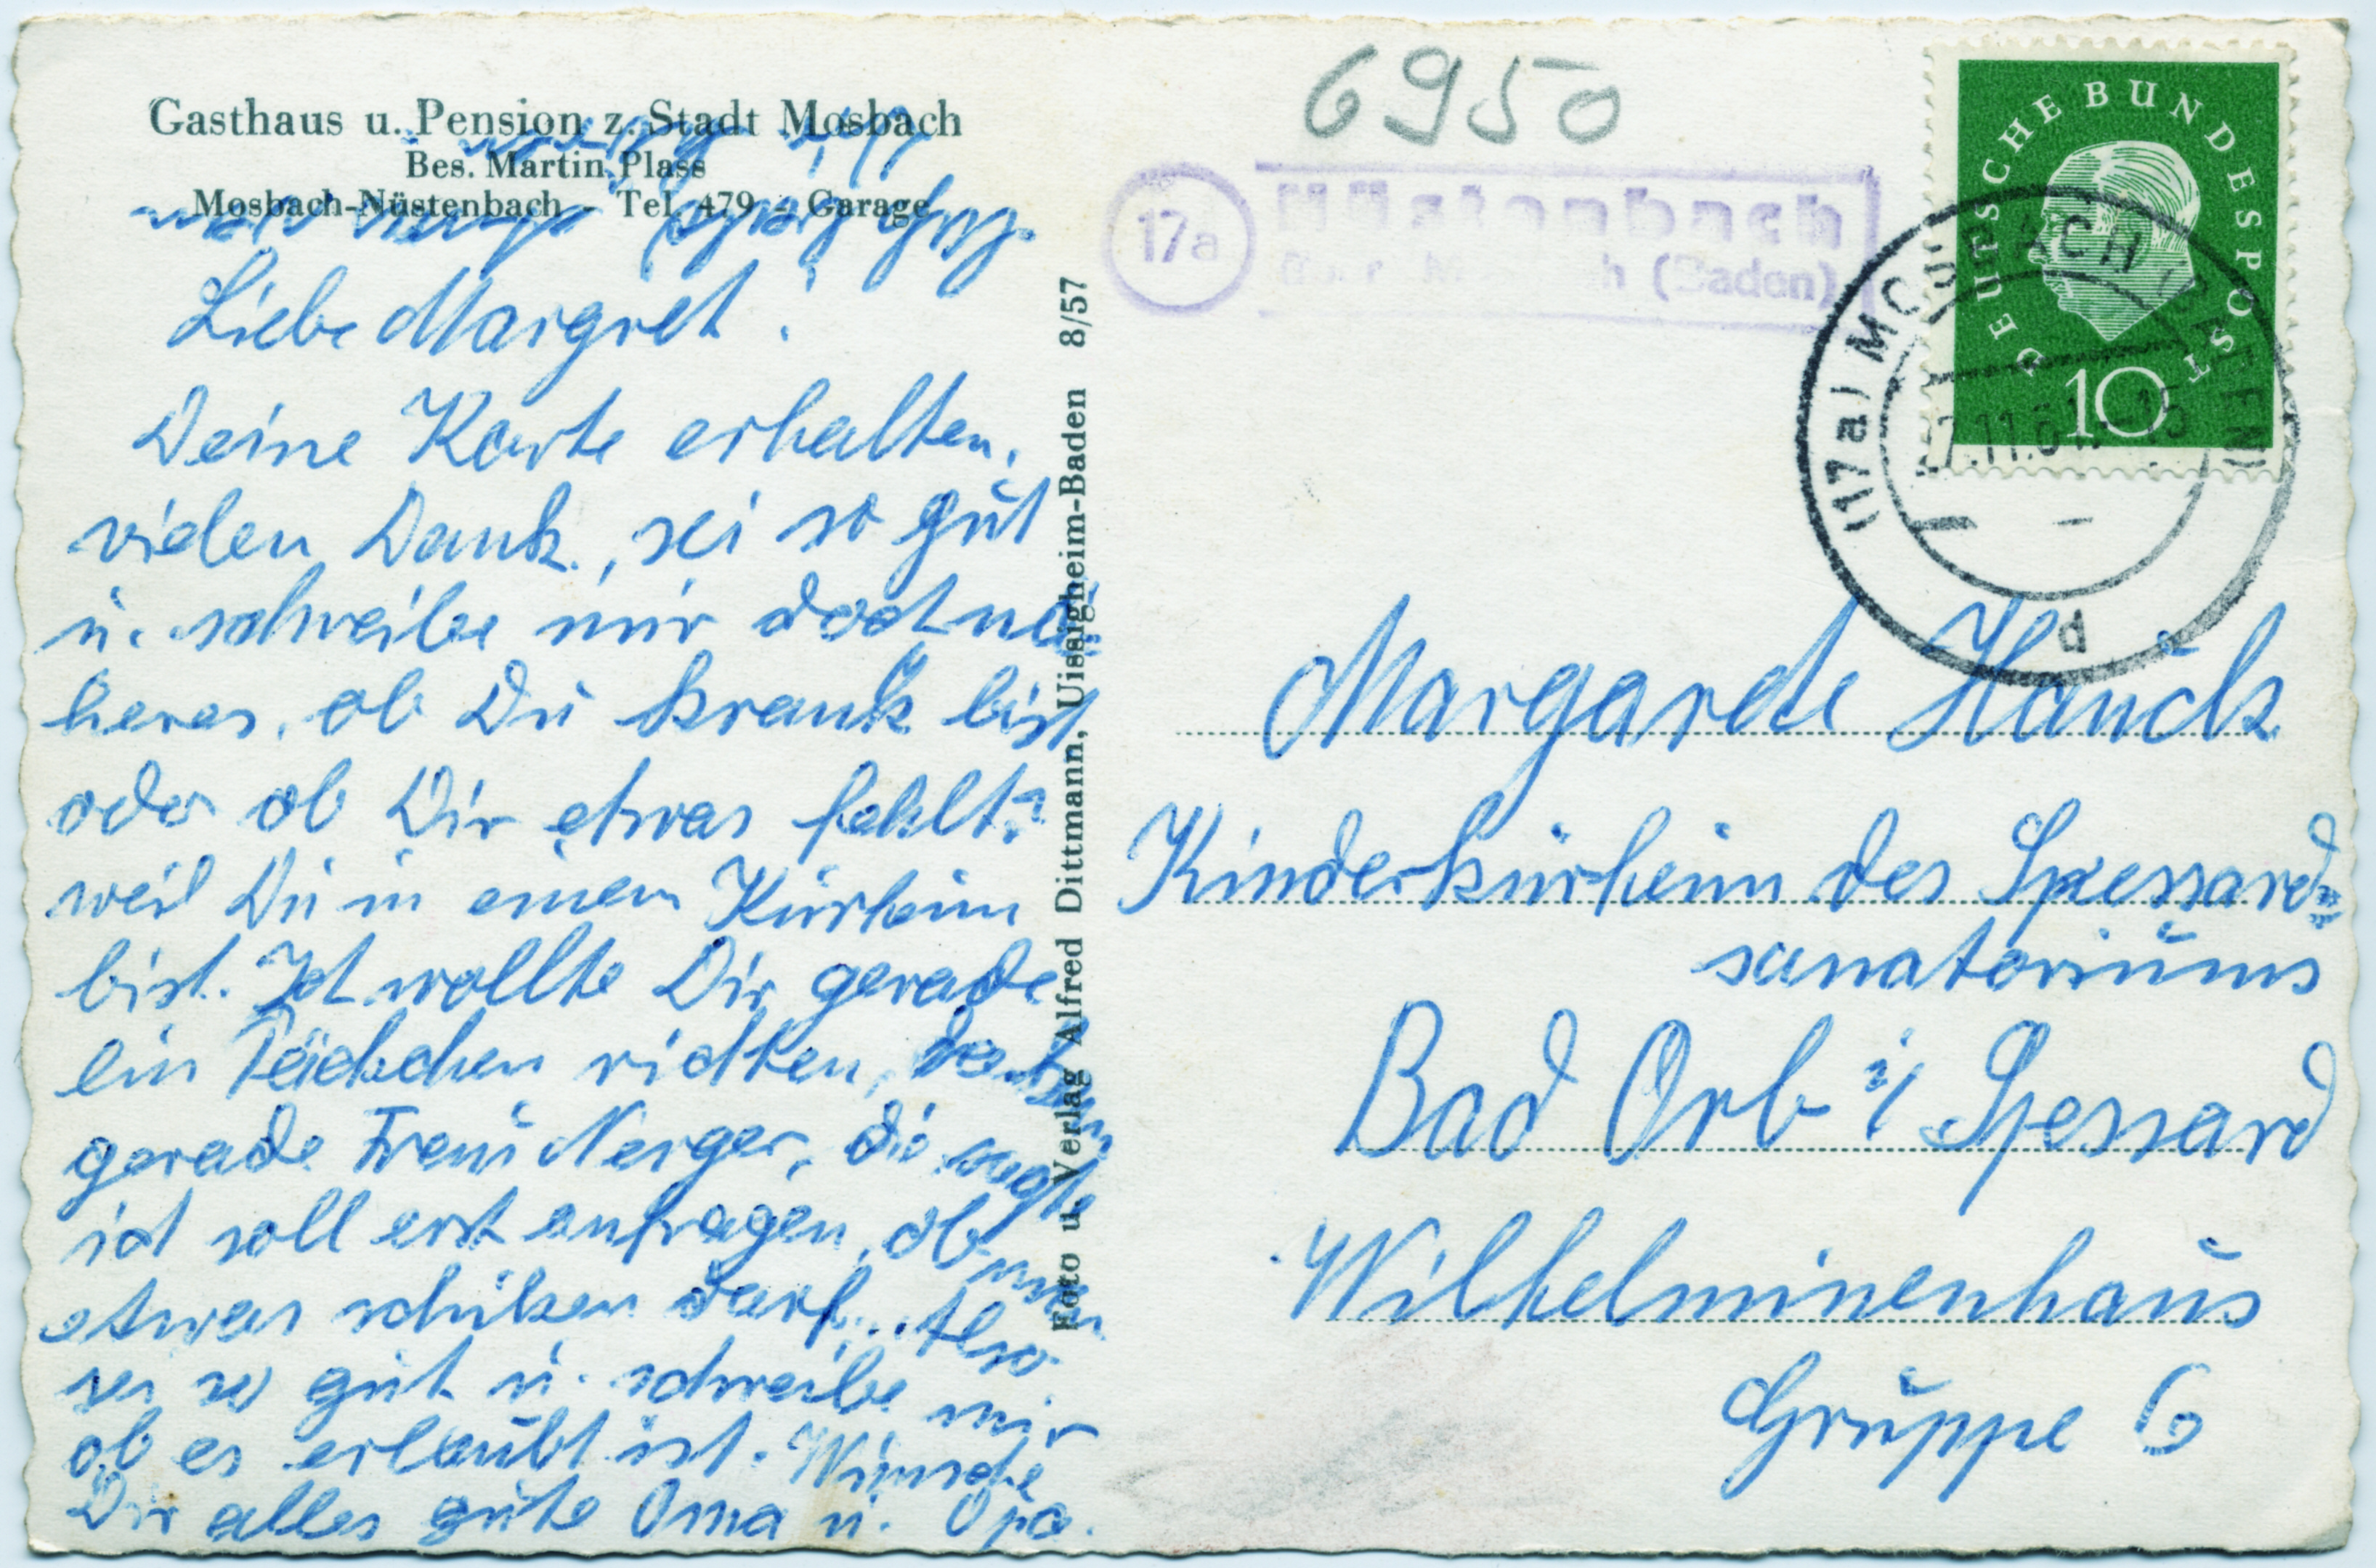 Gasthaus u. Pension z. Stadt Mosbach
Bes. Martin Plass
Mosbach-Nüstenbach - Tel. 479 - Garage
Liebe Margret!
Deine Karte erhalten,
vielen Dank, sei so gut
u. schreibe mir doch nä=
heres, ob Du krank bist
oder ob Dir etwas fehlt?
weil Du in einem Kurheim
bist. Ich wollte Dir gerade
ein Päckchen richten, da kam
gerade Frau Nerger, die sagte
ich soll erst anfragen, ob man
etwas schiken darf... Also
sei so gut u. schreibe mir
ob es erlaubt ist. Wünsche
Dir alles gute Oma u. Opa.
Foto u. Verlag Alfred Dittmann, Uissigheim-Baden 8/57
6950
17a
Nüstenbach
(Baden)
DEUTSCHE BUNDESPOST
10
(17a) MOSBACH (BADEN)
7.11.61.-15
d
Margarete Hauck
Kinderkurheim des Spessard=
sanatoriums
Bad Orb i/ Spessard
Wilhelminenhaus
Gruppe 6